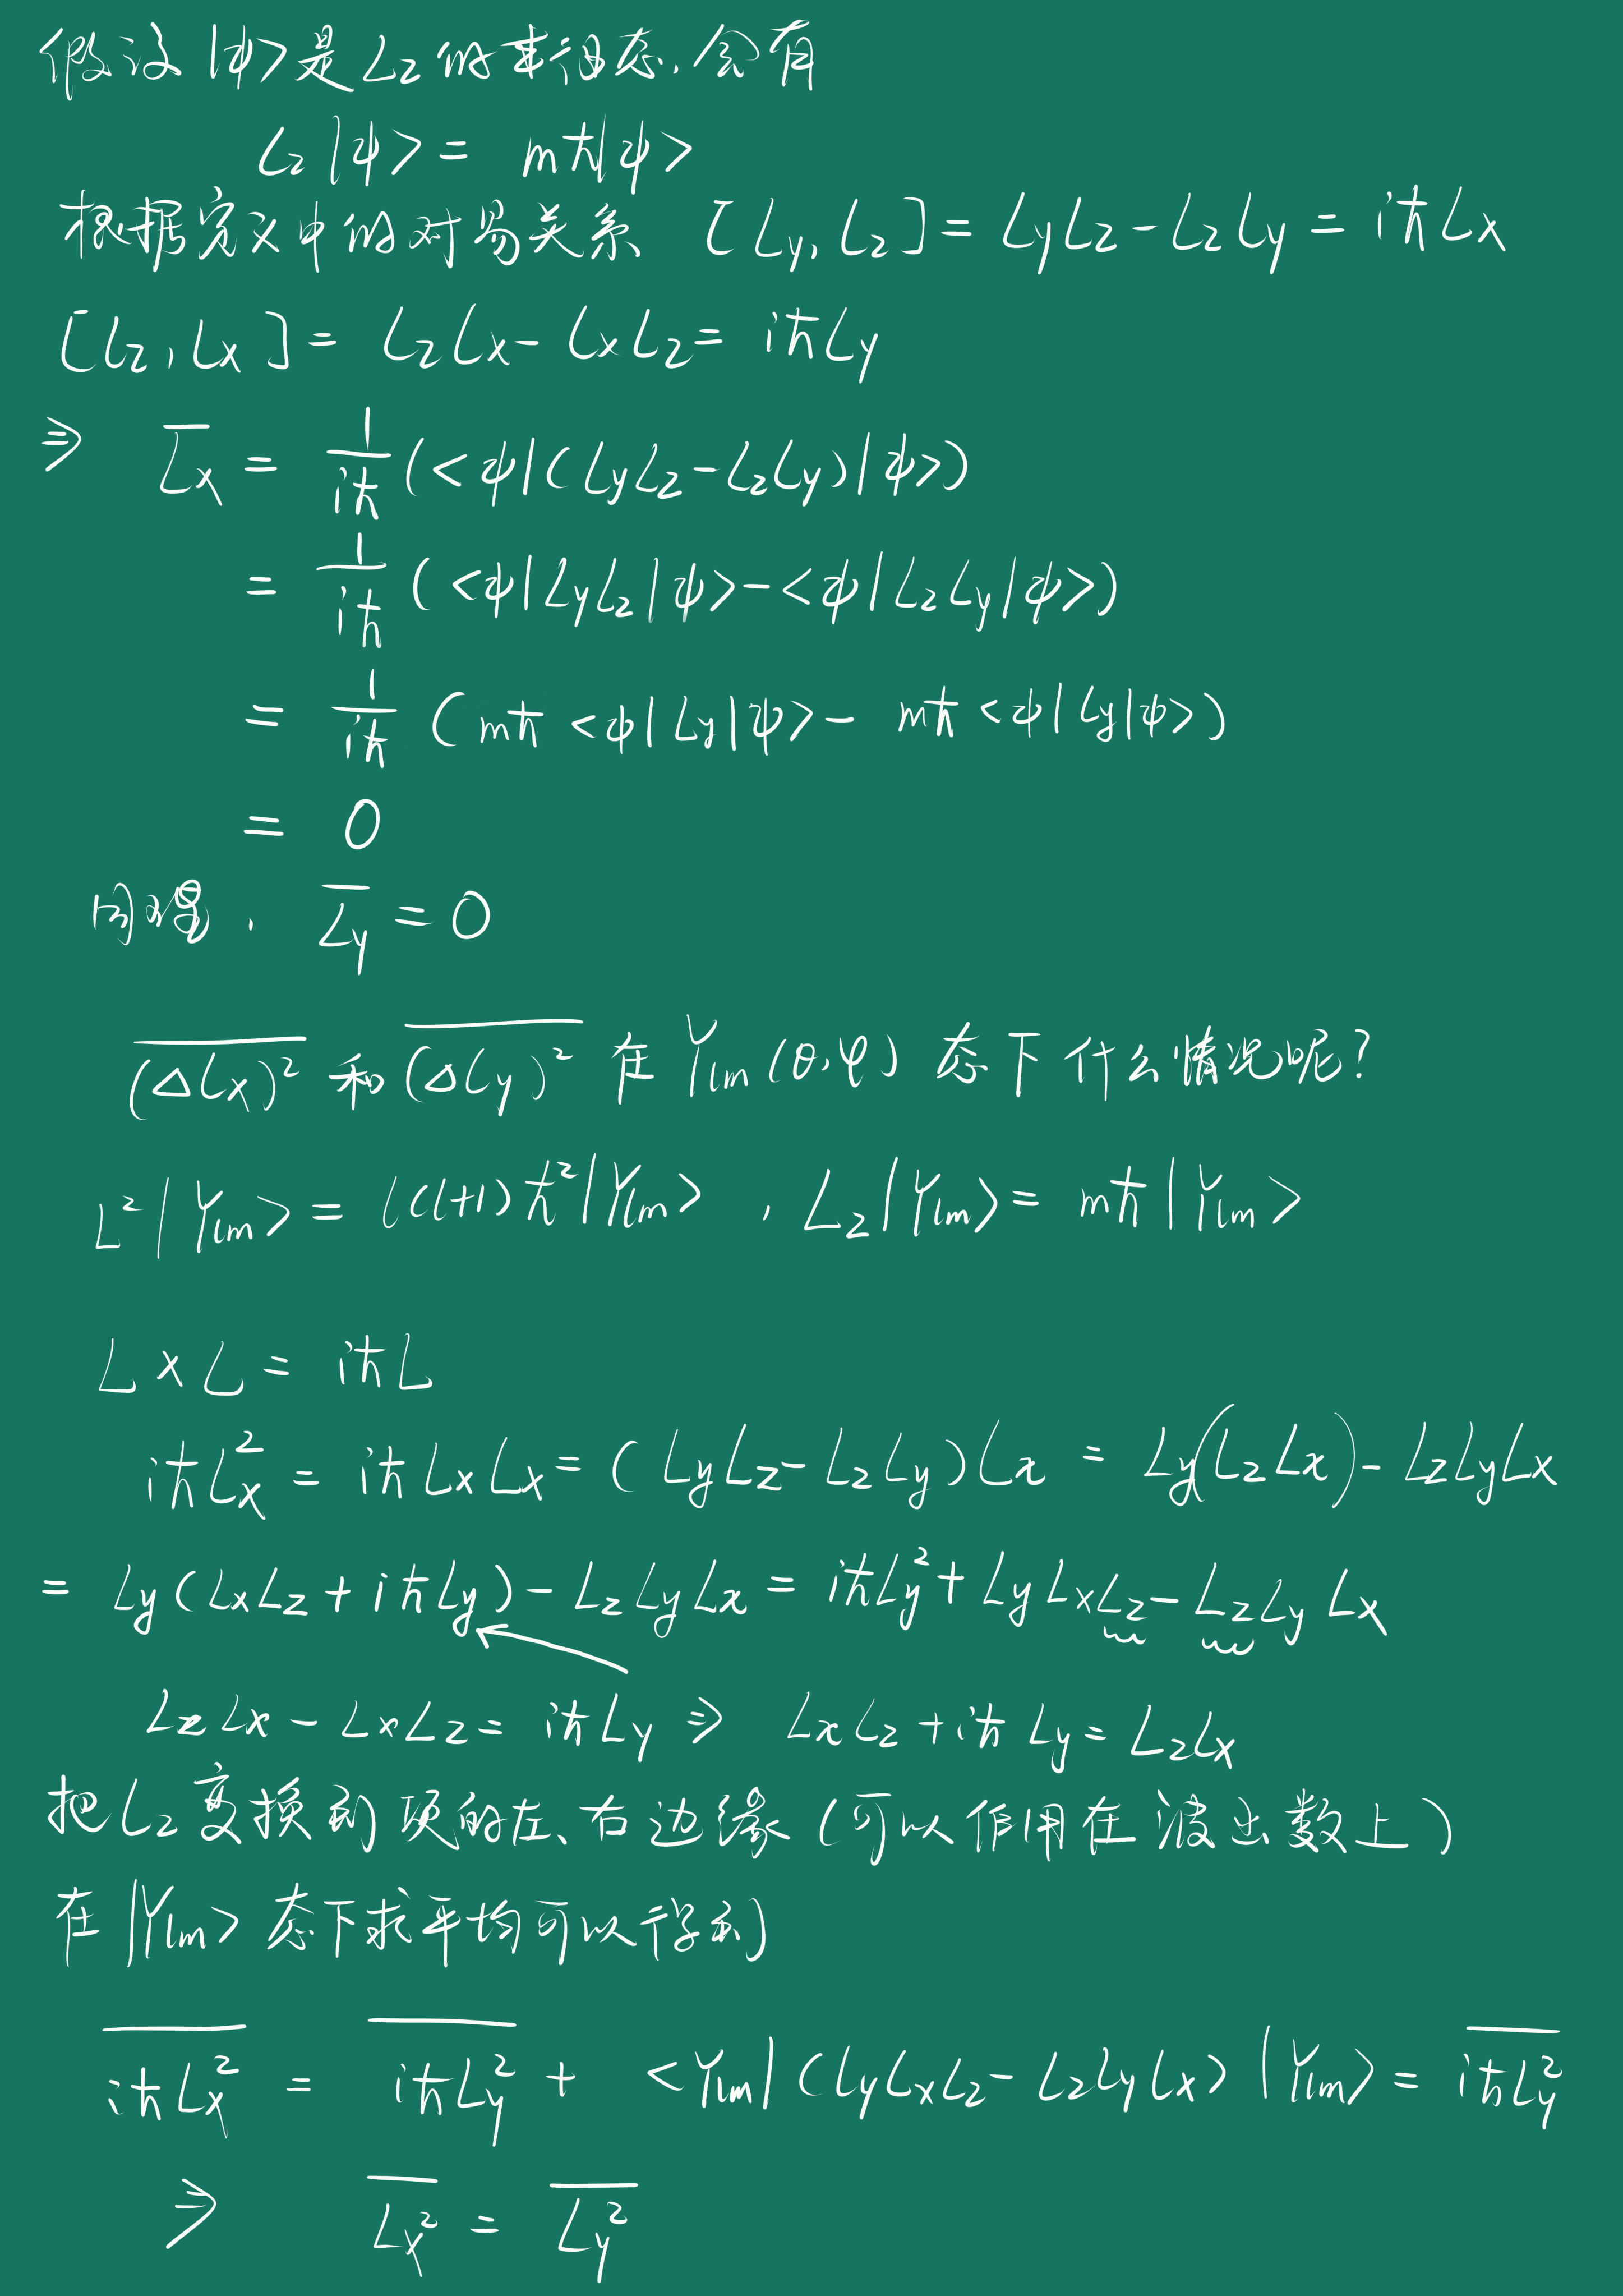 假设 |ψ> 是 Lz 的本征态, 会有
Lz|ψ> = mħ|ψ>
根据定义中的对易关系 [Ly, Lz] = LyLz - LzLy = iħLx
[Lz, Lx] = LzLx - LxLz = iħLy
⇒ L̅x̅ = 1/iħ (<ψ|(LyLz - LzLy)|ψ>)
= 1/iħ (<ψ|LyLz|ψ> - <ψ|LzLy|ψ>)
= 1/iħ (mħ<ψ|Ly|ψ> - mħ<ψ|Ly|ψ>)
= 0
同理, L̅y̅ = 0
\overline{(ΔLx)²} 和 \overline{(ΔLy)²} 在 Ylm(θ,φ) 态下什么情况呢?
L²|Ylm> = l(l+1)ħ²|Ylm>, Lz|Ylm> = mħ|Ylm>
L × L = iħL
iħLx² = iħLxLx = (LyLz - LzLy)Lx = Ly(LzLx) - LzLyLx
= Ly(LxLz + iħLy) - LzLyLx = iħLy² + LyLxLz - LzLyLx
LzLx - LxLz = iħLy ⇒ LxLz + iħLy = LzLx
把 Lz 变换到项的左、右边缘 (可以作用在波函数上)
在 |Ylm> 态下求平均可以得到
\overline{iħLx²} = \overline{iħLy²} + <Ylm|(LyLxLz - LzLyLx)|Ylm> = \overline{iħLy²}
⇒ \overline{Lx²} = \overline{Ly²}